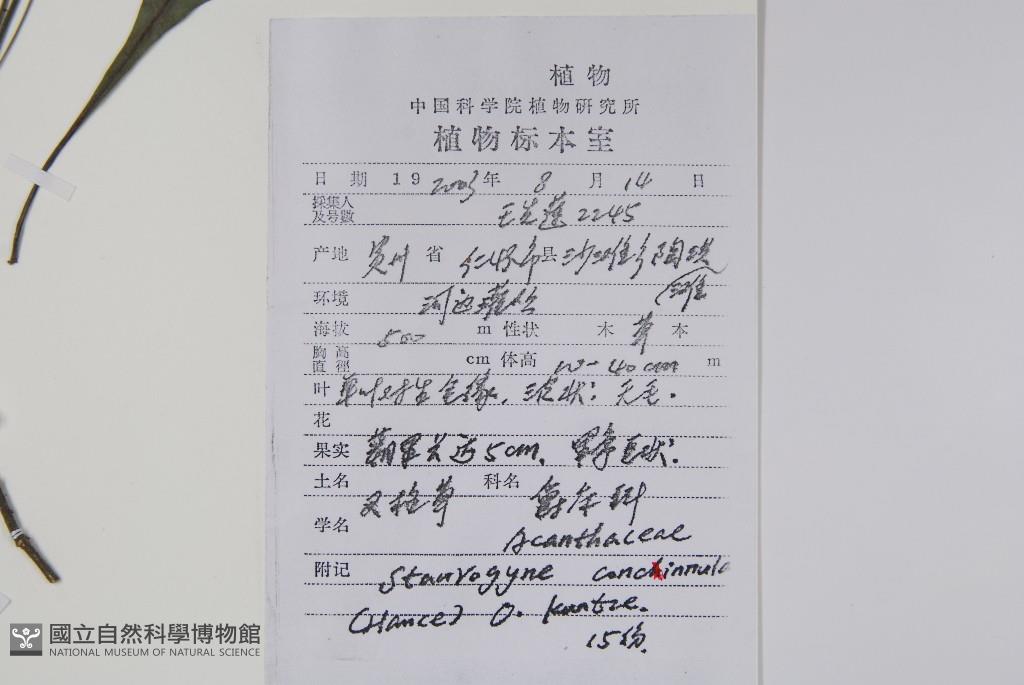 植物
中国科学院植物研究所
植物标本室
日期 19 2003年 8 月 14 日
採集人及号數 王 2245
产地 贵州 省 仁怀市县 沙滩乡陶洪滩
环境 河边灌丛
海拔 500 m 性状 木 草 本
胸高直徑 cm 体高 40 cm m
叶 单叶对生全缘, 无毛.
花
果实 蒴果长近5cm,
土名 叉柱草 科名 爵床科
学名 Acanthaceae
附记 Staurogyne conchinnula
(Hance) O. Kuntze.
15份.
國立自然科學博物館
NATIONAL MUSEUM OF NATURAL SCIENCE